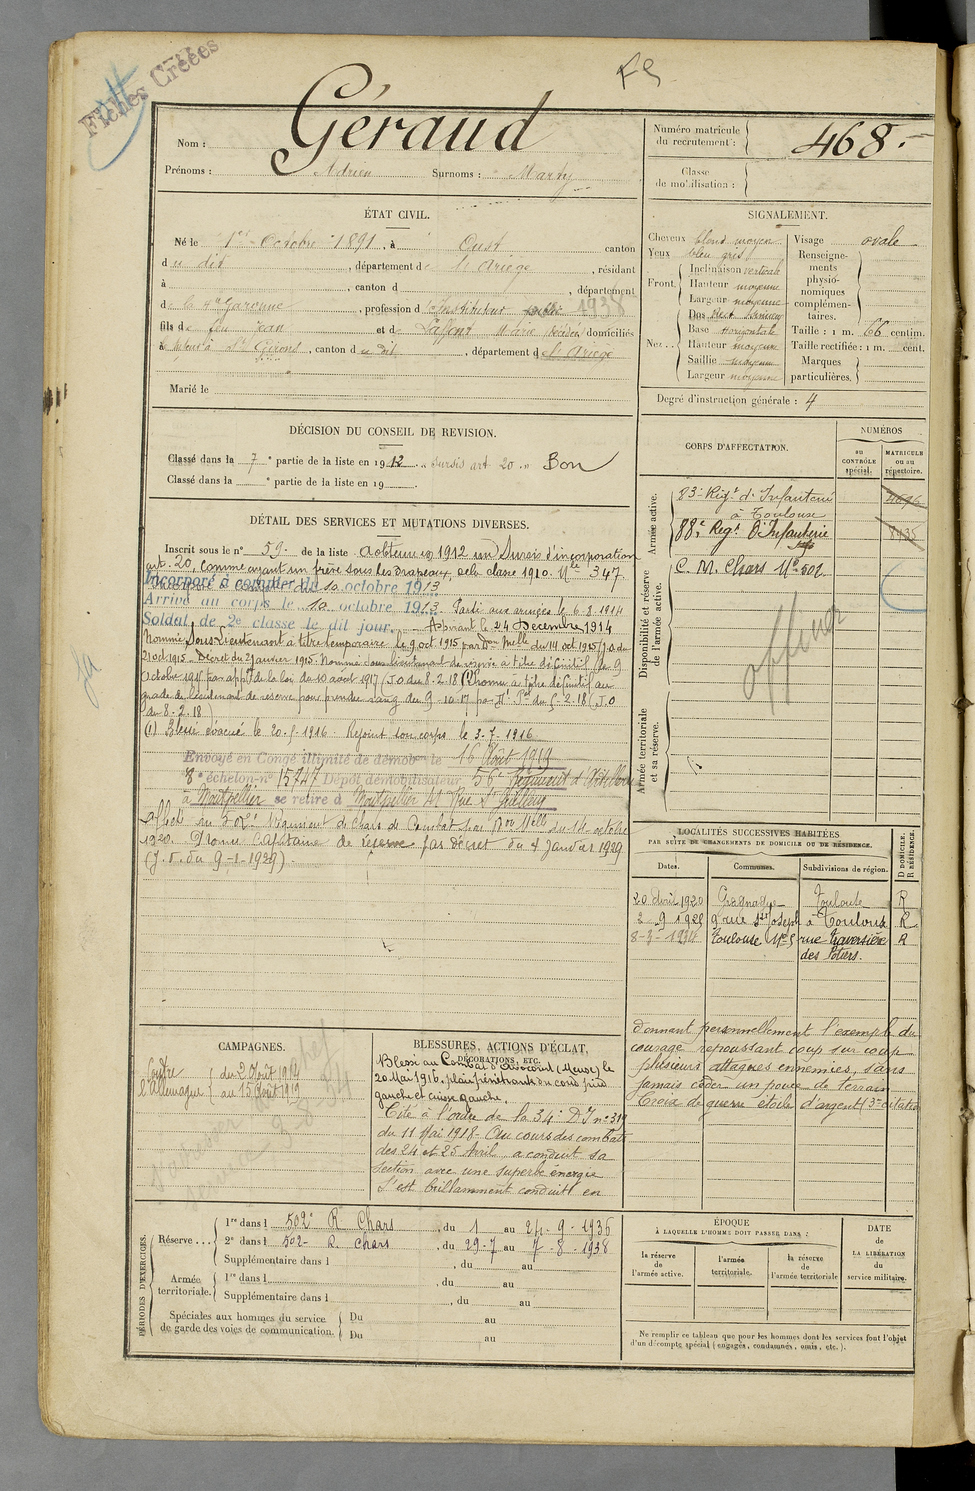 Fiches Créées
Nom : Géraud
Prénoms : Adrien Surnoms : Marty
Numéro matricule du recrutement : 468.
Classe de mobilisation :
ÉTAT CIVIL.
Né le 1er Octobre 1891, à Oust canton
du dit, département de l'Ariège, résidant
à , canton d , département
de la Hte Garonne, profession d'Instituteur public 1938
fils de feu Jean et de Laffont Marie décédée domiciliés
à St Girons, canton du dit, département de l'Ariège
Marié le
SIGNALEMENT.
Cheveux blond moyen
Yeux bleu gris
Front. Inclinaison verticale
Hauteur moyenne
Largeur moyenne
Nez.. Dos
Base horizontale
Hauteur moyenne
Saillie moyenne
Largeur moyenne
Visage ovale
Renseignements physionomiques complémentaires.
Taille : 1 m. 66 centim.
Taille rectifiée : 1 m. cent.
Marques particulières.
Degré d'instruction générale : 4
DÉCISION DU CONSEIL DE REVISION.
Classé dans la 7e partie de la liste en 1912 .. sursis art 20 .. Bon
Classé dans la e partie de la liste en 19 .
DÉTAIL DES SERVICES ET MUTATIONS DIVERSES.
Inscrit sous le n° 59. de la liste a obtenu en 1912 un sursis d'incorporation
art. 20, comme ayant un frère sous les drapeaux de la classe 1910. Nle 347.
Incorporé à compter du 10 octobre 1913
Arrivé au corps le 10 octobre 1913. Parti aux armées le 6.8.1914
Soldat de 2e classe le dit jour. Aspirant le 24 Décembre 1914
Nommé Sous-Lieutenant à titre temporaire le 9 oct. 1915 par Don Melle du 14 oct 1915 (J.O. du
21 oct 1915 Décret du 2 janvier 1915. Nommé sous lieutenant de réserve à titre définitif du 9
Octobre 1915 par appon de la loi du 10 août 1917 (J.O. du 8.2.18 (1) Promu à titre définitif au
grade de lieutenant de réserve pour prendre rang du 9-10-17 par Dt Pel du 5-2-18 (J.O
du 8-2-18)
(1) Blessé évacué le 20-5-1916. Rejoint son corps le 3-7-1916
Envoyé en Congé illimité de démobon le 16 Août 1919
8e échelon n° 15747 Dépôt démobilisateur 56e Régiment d'Artillerie
à Montpellier se retire à Montpellier 41 Rue St Guilhem
Affecté au 502e Régiment de Chars de Combat par Don Melle du 14 octobre
1920. Promu Capitaine de réserve par décret du 4 Janvier 1929
(J.O. du 9-1-1929)
CORPS D'AFFECTATION.
NUMÉROS
au CONTRÔLE spécial.
MATRICULE ou au répertoire.
Armée active.
83e Régt d'Infanterie
à Toulouse
88e Régt d'Infanterie 8435
Disponibilité et réserve de l'armée active.
C. M. Chars No 502
officier
Armée territoriale et sa réserve.
LOCALITÉS SUCCESSIVES HABITÉES
PAR SUITE DE CHANGEMENTS DE DOMICILE OU DE RÉSIDENCE.
Dates. Communes. Subdivisions de région. D DOMICILE. R RÉSIDENCE.
20 Avril 1920 Gragnague Toulouse R
2-9 1925 9 rue St Joseph à Toulouse R
8-3-1934 Toulouse No 5 rue Traversière R
des Potiers.
CAMPAGNES.
Contre l'Allemagne du 2 Août 1914
au 15 Août 1919
BLESSURES, ACTIONS D'ÉCLAT,
DÉCORATIONS, ETC.
Blessé au Combat d'Avocourt (Meuse) le
20 Mai 1916, plaie pénétrante du cou pied
gauche et cuisse gauche.
Cité à l'ordre de la 34e D.I n° 319
du 11 Mai 1918. Au cours des combats
des 24 et 25 Avril a conduit sa
section avec une superbe énergie
S'est brillamment conduit en
donnant personnellement l'exemple du
courage repoussant coup sur coup
plusieurs attaques ennemies, sans
jamais céder un pouce de terrain.
Croix de guerre étoile d'argent (3e citation
PÉRIODES D'EXERCICES.
Réserve ... 1re dans l 502e R Chars, du 1 au 24.9.1936
2e dans l 502- R. Chars, du 29.7 au 7-8-1938
Supplémentaire dans l , du au
Armée territoriale. 1re dans l , du au
Supplémentaire dans l , du au
Spéciales aux hommes du service de garde des voies de communication. Du au
Du au
ÉPOQUE
À LAQUELLE L'HOMME DOIT PASSER DANS :
la réserve de l'armée active.
l'armée territoriale.
la réserve de l'armée territoriale
DATE de LA LIBÉRATION du service militaire.
Ne remplir ce tableau que pour les hommes dont les services font l'objet
d'un décompte spécial (engagés, condamnés, omis, etc.).